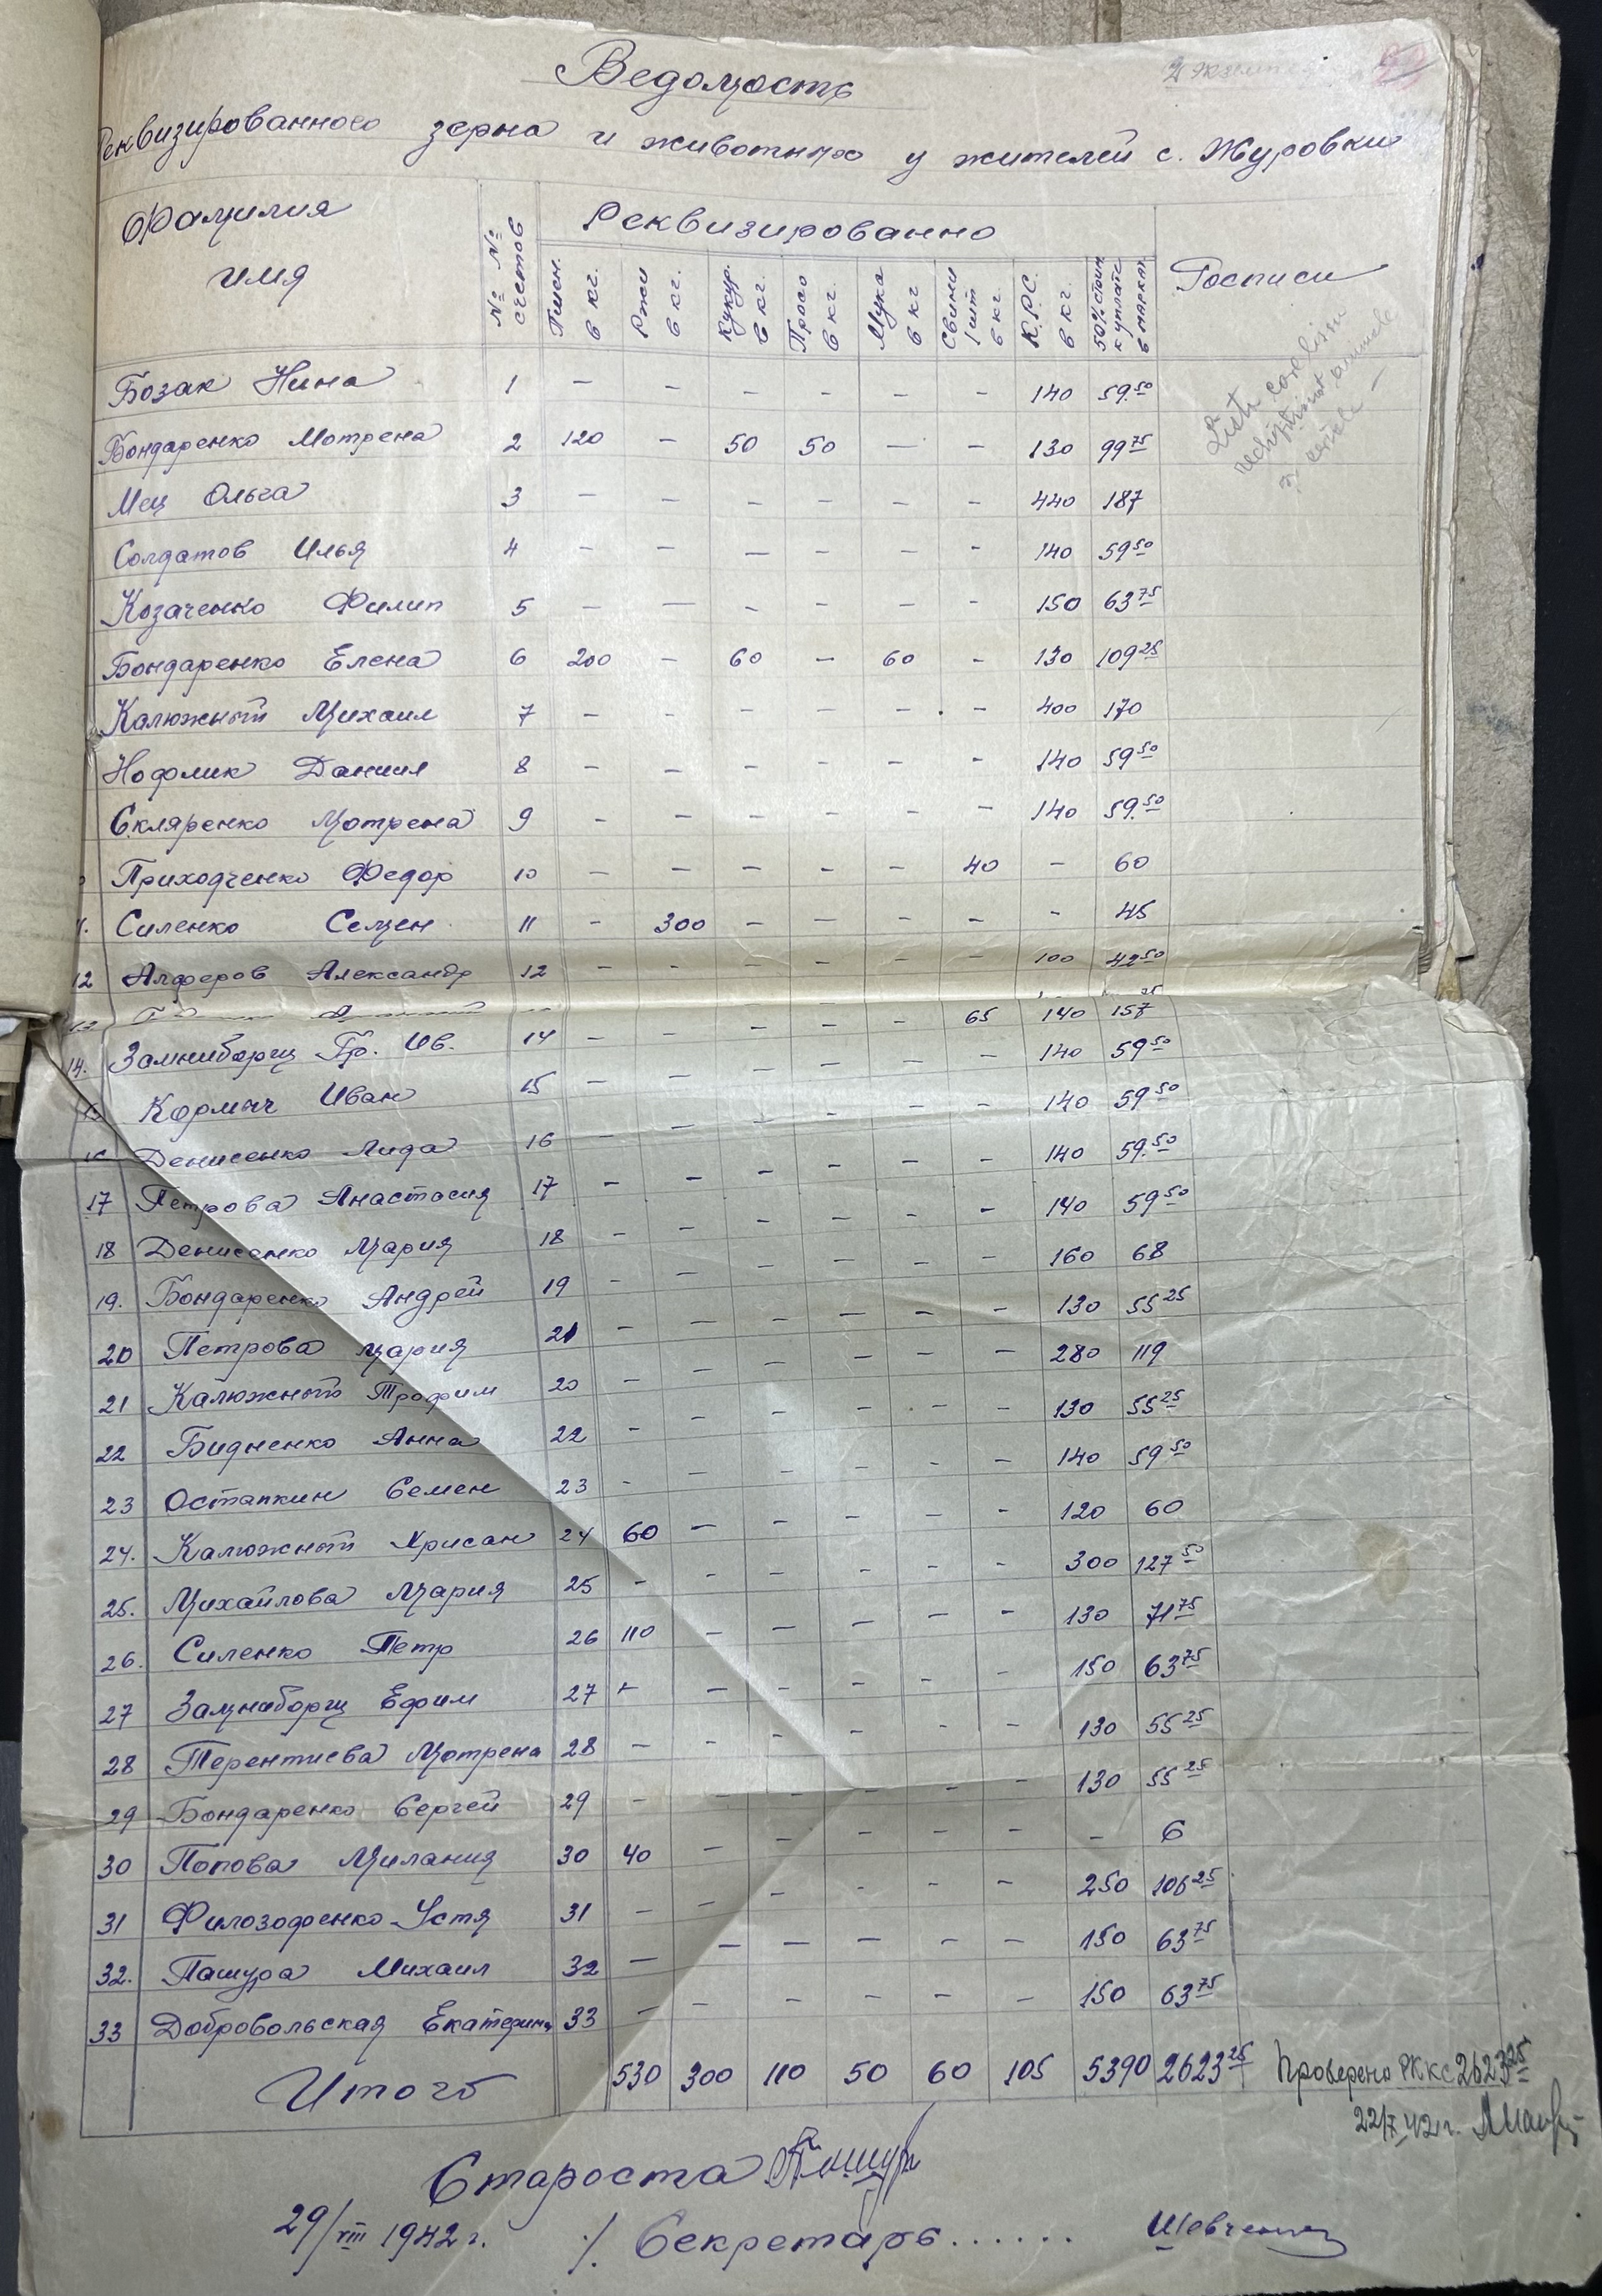 2 экземп
Ведомость
Реквизированного зерна и животных у жителей с. Журовки
Фамилия имя
№ № счетов
Реквизированно
Пшен. в кг.
Ржи в кг.
Кукур. в кг.
Просо в кг.
Мука в кг
Свини 1 шт в кг.
К.Р.С. в кг.
50% стоим. к уплате в марках
Росписи
Бозак Нина 1 – – – – – – 140 59.50
Бондаренко Мотрена 2 120 – 50 50 – – 130 99 75
Мец Ольга 3 – – – – – – 440 187
Солдатов Илья 4 – – – – – – 140 59 50
Козаченко Филип 5 – – – – – – 150 63 75
Бондаренко Елена 6 200 – 60 – 60 – 130 109 25
Калюжный Михаил 7 – – – – – – 400 170
Нофлик Даниил 8 – – – – – – 140 59 50
Скляренко Мотрена 9 – – – – – – 140 59.50
Приходченко Федор 10 – – – – – 40 – 60
11. Силенко Семен 11 – 300 – – – – – 45
12 Алферов Александр 12 – – – – – – 100 42 50
13 – – – 65 140 157 25
14. Замниборщ Гр. Ив. 14 – – – – – – 140 59 50
15 Кормыч Иван 15 – – – – – – 140 59 50
16 Денисенко Лида 16 – – – – – – 140 59.50
17 Петрова Анастасия 17 – – – – – – 140 59 50
18 Денисенко Мария 18 – – – – – – 160 68
19. Бондаренко Андрей 19 – – – – – – 130 55 25
20 Петрова Мария 21 – – – – – – 280 119
21 Калюжный Трофим 20 – – – – – – 130 55 25
22 Бидненко Анна 22 – – – – – – 140 59 50
23 Остапкин Семен 23 – – – – – – 120 60
24. Калюжный Хрисан 24 60 – – – – – 300 127 50
25. Михайлова Мария 25 – – – – – – 130 71 75
26. Силенко Петр 26 110 – – – – – 150 63 75
27 Замниборщ Ефим 27 – – – – – – 130 55 25
28 Терентиева Мотрена 28 – – – – – – 130 55 25
29 Бондаренко Сергей 29 – – – – – – – 6
30 Попова Милания 30 40 – – – – – 250 106 25
31 Филозофенко Устя 31 – – – – – – 150 63 75
32. Пашура Михаил 32 – – – – – – 150 63 75
33 Добровольская Екатерина 33 – – – – – –
Итого 530 300 110 50 60 105 5390 2623 25
Проверено РККС 2623 25
22/X 42 г.
Староста Пашура
29/VIII 1942 г. /. Секретарь...... Шевченко